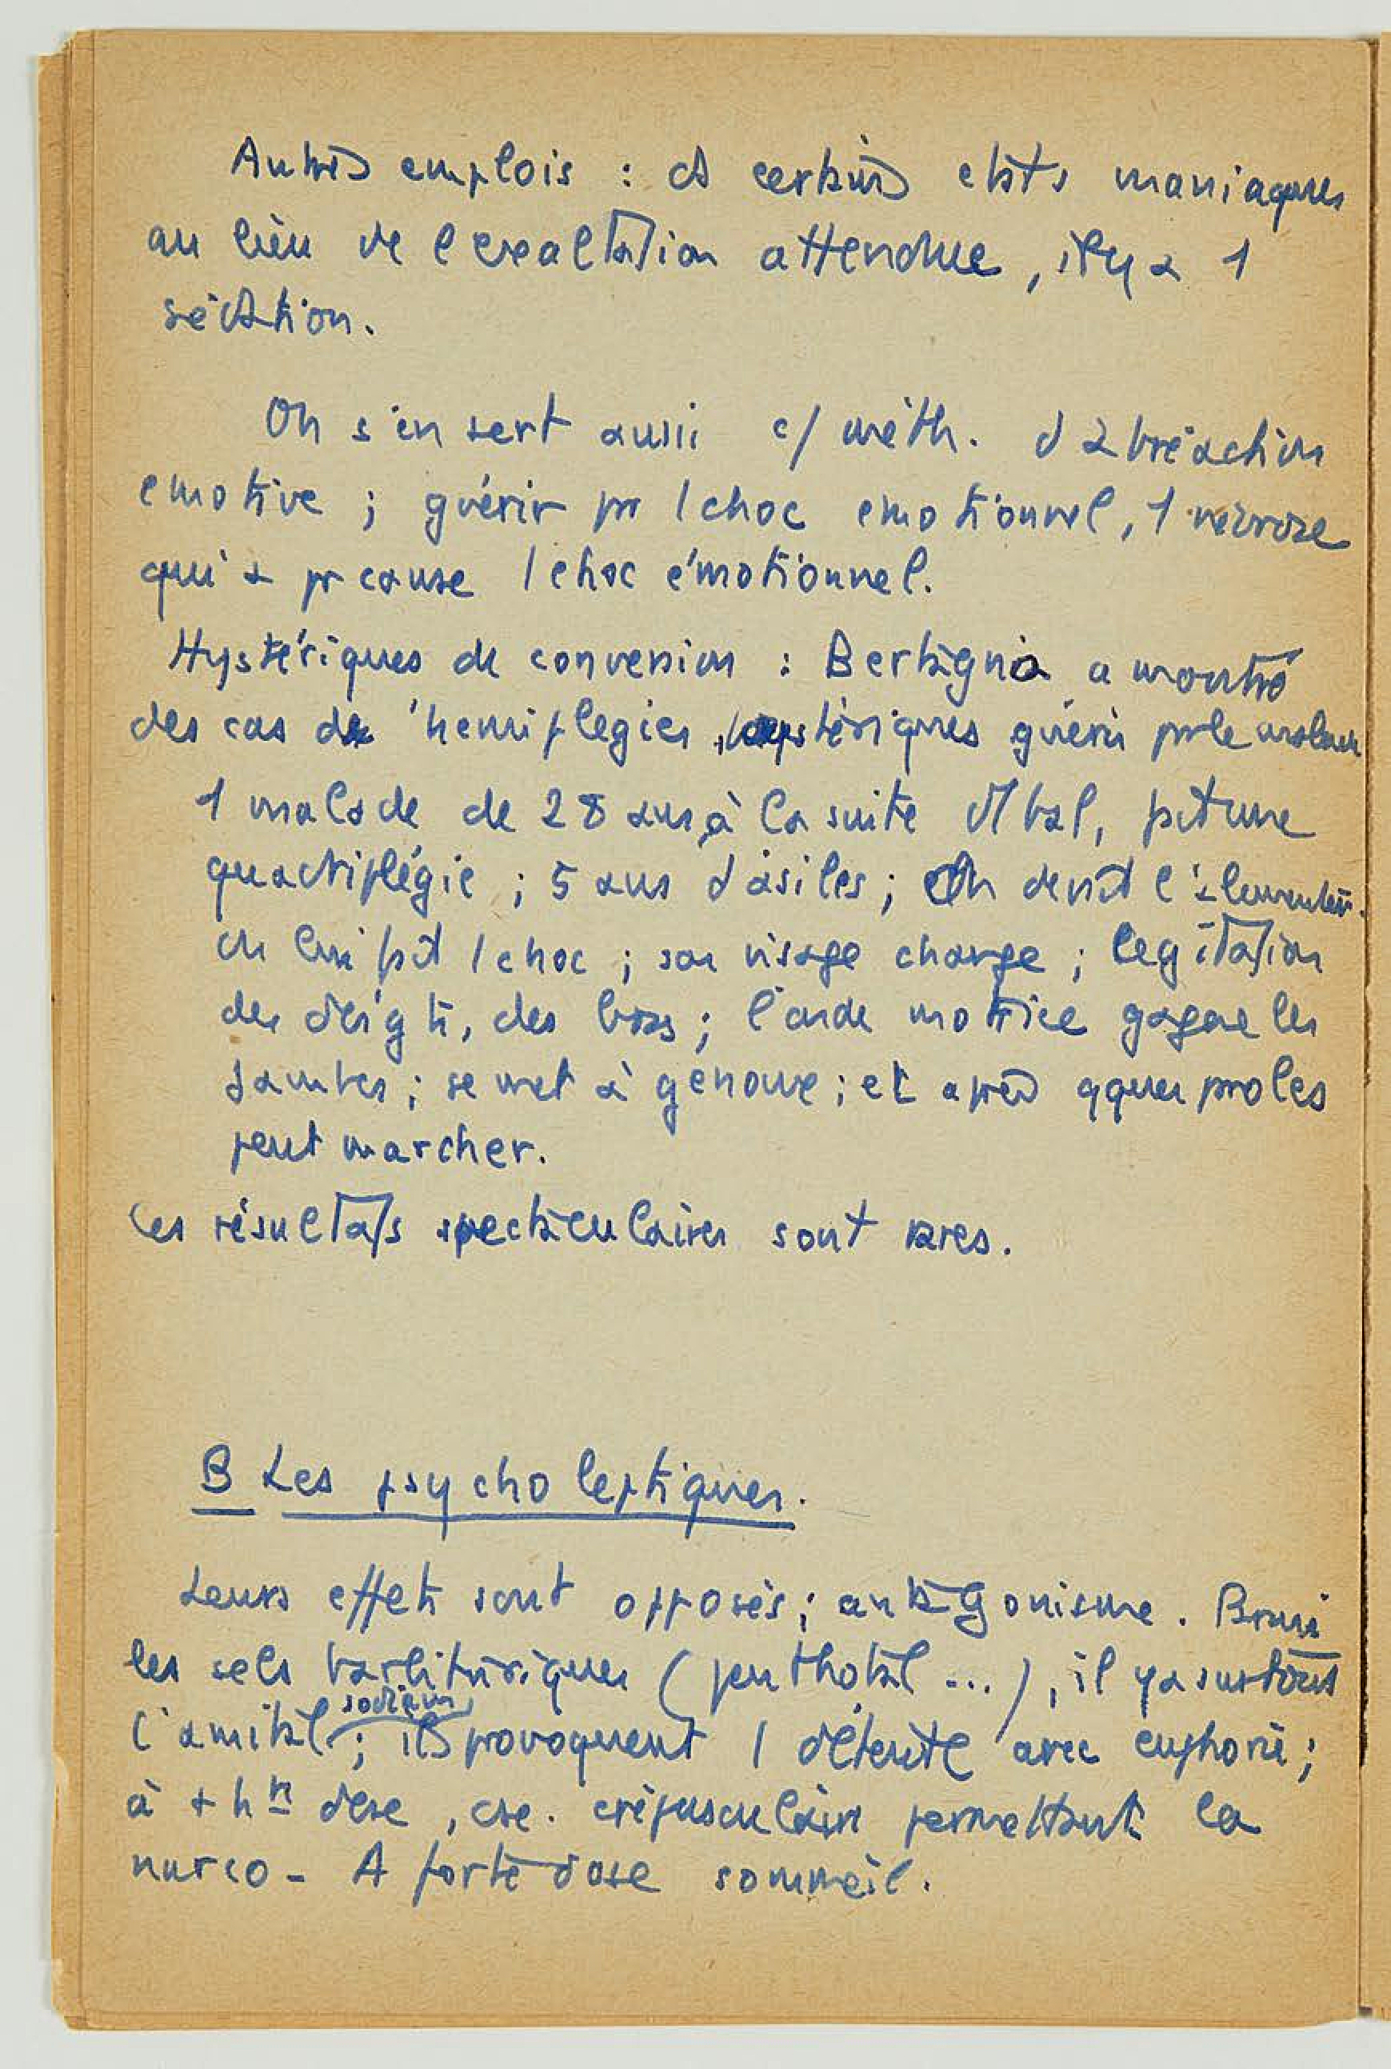 Autres emplois : ds certains etats maniaques
au lieu de l'exaltation attendue, il y a 1
sédation.
On s'en sert aussi c/ méth. d'abréaction
emotive ; guérir pr 1 choc emotionnel, 1 névrose
qui a pr cause 1 choc émotionnel.
Hystériques de conversion : Bertagna a montré
des cas de hemiplegies hystériques guéris par le
1 malade de 28 ans, à la suite d'1 bal, fit une
quadriplégie ; 5 ans d'asiles ; On devait l'alimenter.
on lui fit 1 choc ; son visage change ; legitation
des doigts, des bras ; l'onde motrice gagne les
jambes ; se met à genoux ; et après qques paroles
peut marcher.
Ces résultats spectaculaires sont rares.
B Les psycholeptiques.
Leurs effets sont opposés ; antagonisme. Parmi
les sels barbituriques (penthotal ...), il y a surtout
l'amital sodium ; ils provoquent 1 détente avec euphorie ;
à + hte dose, cse. crépusculaire permettant la
narco - A forte dose sommeil.